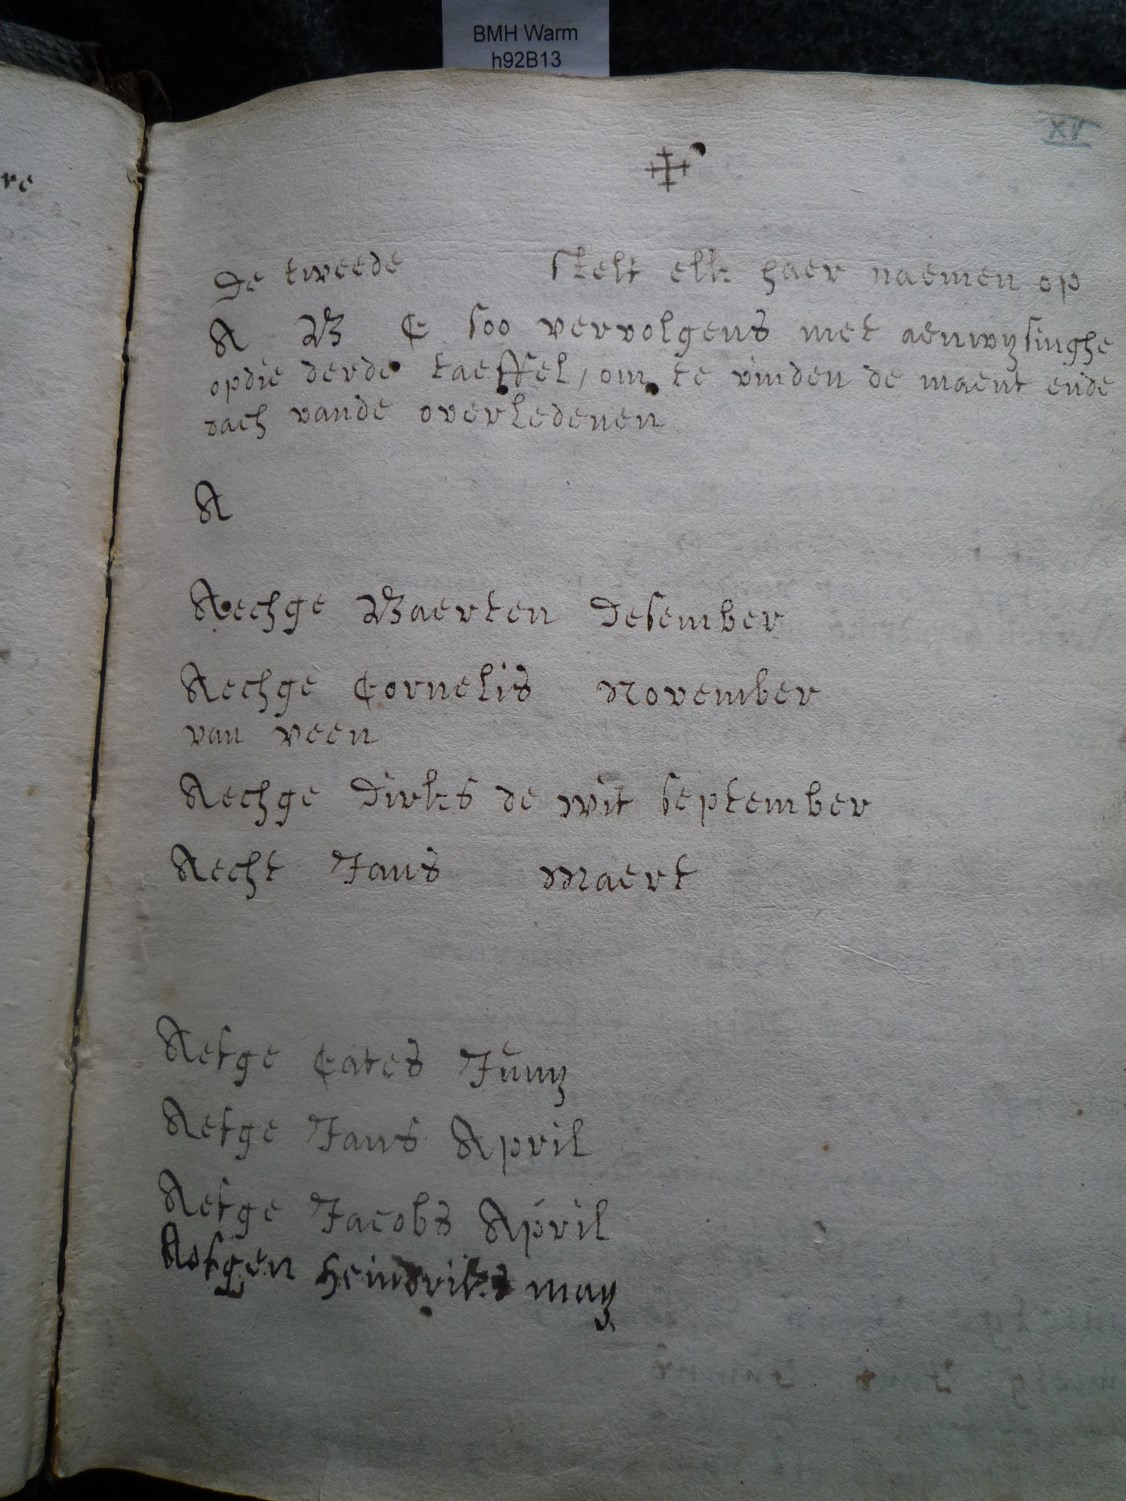 BMH Warm
h92B13
XV
re
De tweede stelt elk haer naemen op
A B C soo vervolgens met aenwysinghe
opdie derde taeffel, om te vinden de maent ende
dach vande overledenen
A
Aechge Baerten Desember
Aechge Cornelis November
van veen
Aechge Dirks de wit september
Aecht Jans Maert
Aefge Cates Juny
Aefge Jans April
Aefge Jacobs April
Aefgen Heindriks may